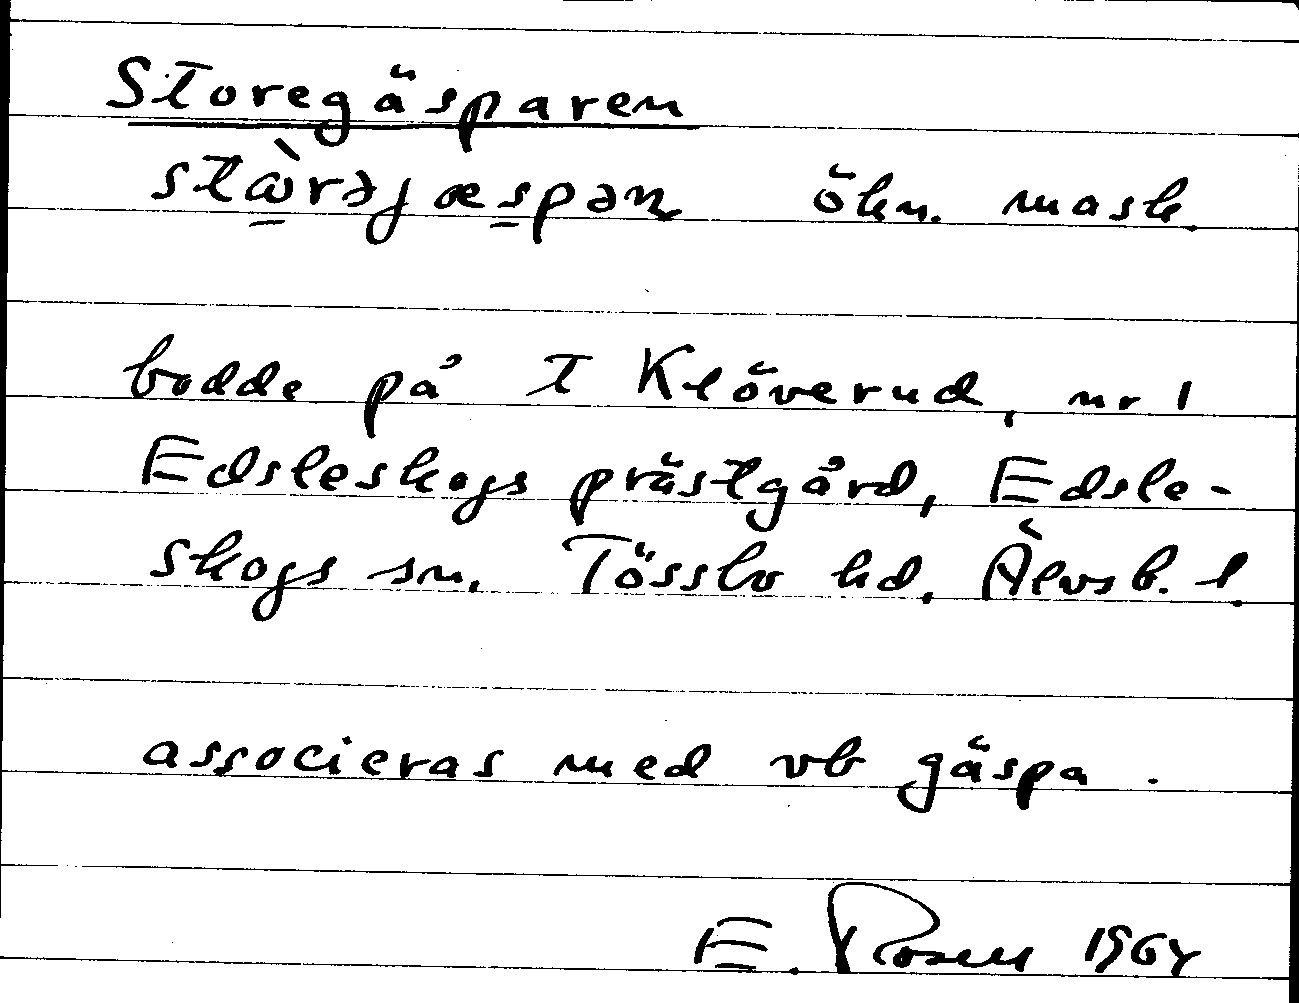 Storegäsparen
stⱥ̀rəjæspən ökn. mask.
bodde på t Klöverud, nr 1
Edsleskogs prästgård, Edsle-
skogs sn. Tössbo hd, Älvsb. l.
associeras med vb gäspa.
E. Rosell 1964